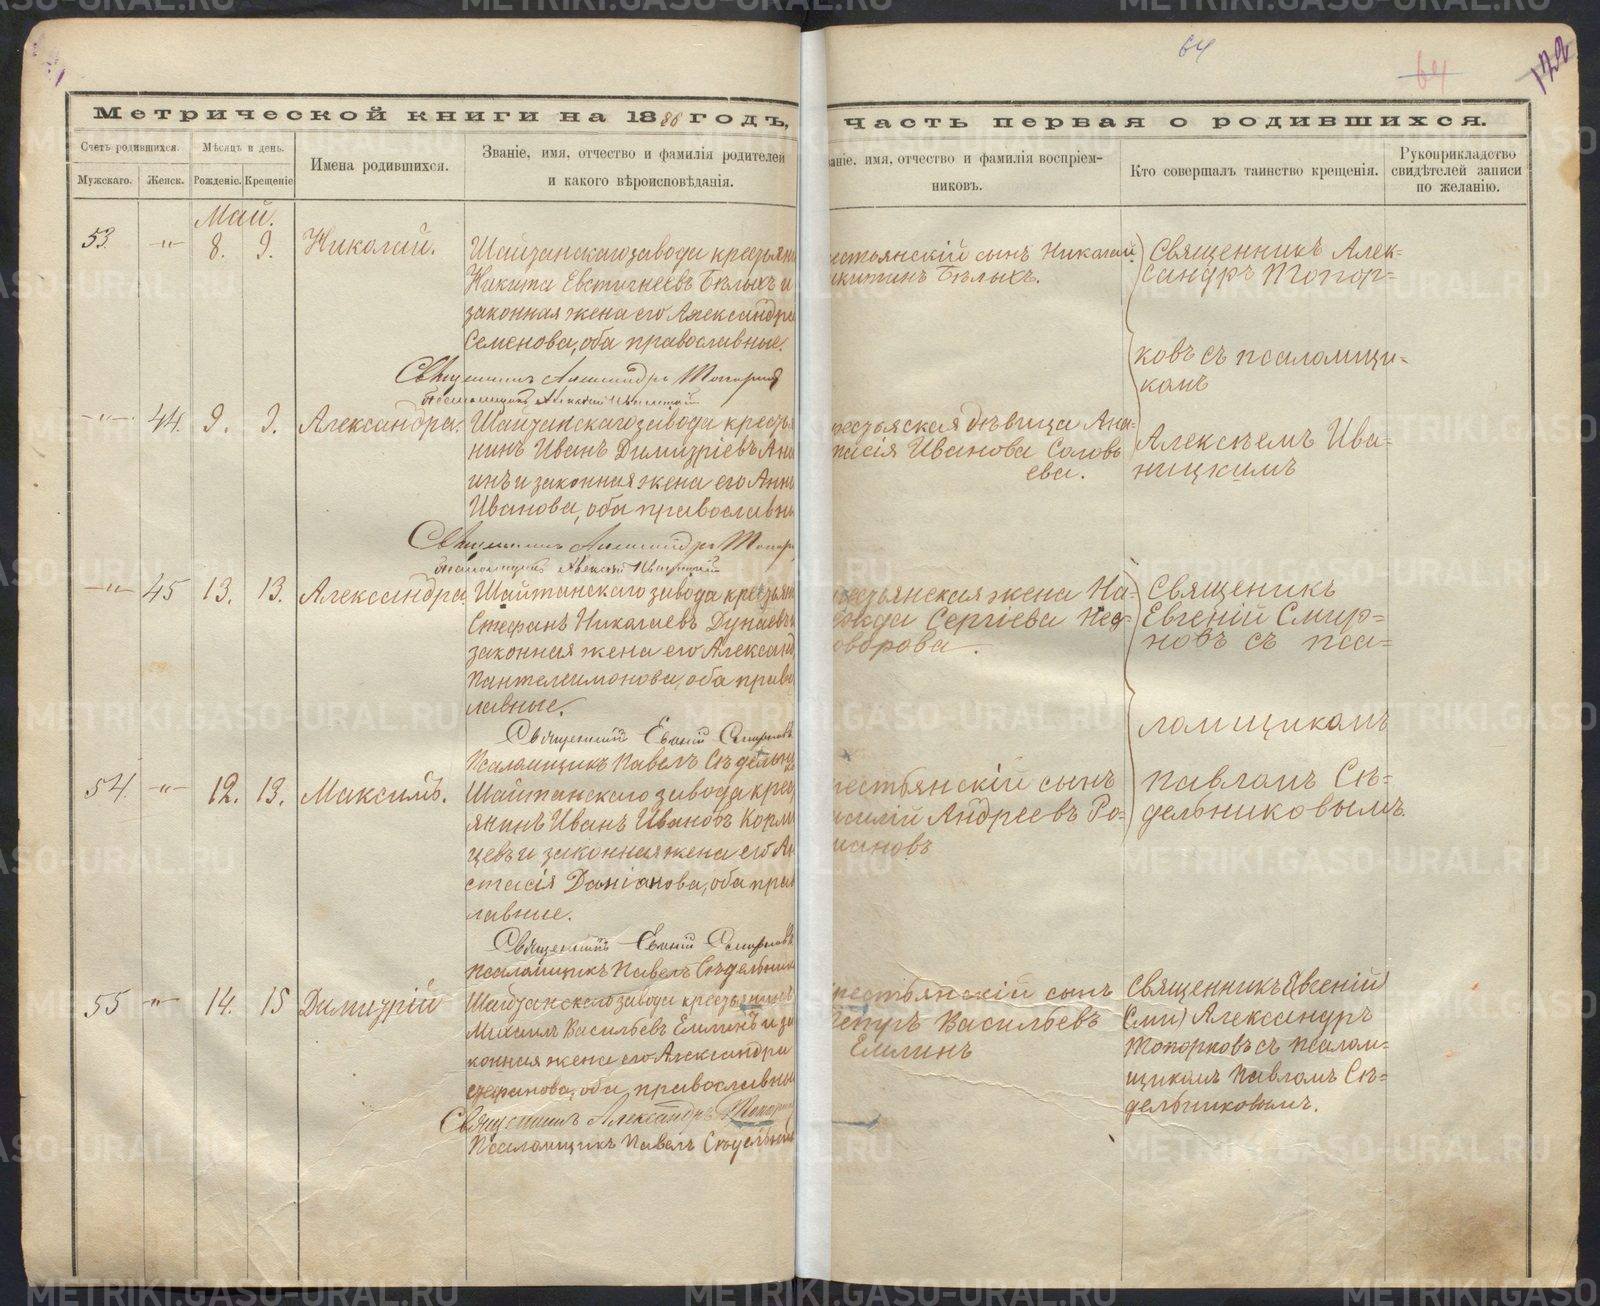 64
64
Метрической книги на 1886 годъ,
часть первая о родившихся.
Счетъ родившихся.
Мѣсяцъ и день.
Имена родившихся.
Званіе, имя, отчество и фамилія родителей
и какого вѣроисповѣданія.
Мужскаго.
Женск.
Рожденіе.
Крещеніе
аніе, имя, отчество и фамилія воспріем-
никовъ.
Кто совершалъ таинство крещенія.
Рукоприкладство
свидѣтелей записи
по желанію.
Май.
53. -"- 8. 9. Николай.
Шайтанскаго завода крестьян
Никита Евстигнеевъ Бѣлыхъ и
законная жена его Александра
Семенова, оба православные.
Священникъ Александръ Топорков
Псаломщикъ Алексій Иваницкій
естьянскій сынъ Николай
икитинъ Бѣлыхъ.
Священникъ Алек-
сандръ Топор-
ковъ съ псаломщи-
комъ
-"- 44. 9. 9. Александра.
Шайтанскаго завода кресть
нинъ Иванъ Димитріевъ Ани
инъ и законная жена его Анн
Иванова, оба православн
Священникъ Александръ Топор
Псаломщикъ Алексій Иваницкій
рестьяская дѣвица Ана-
тасія Иванова Соловь
ева.
Алексѣемъ Ива-
ницкимъ
-"- 45 13. 13. Александра.
Шайтанскаго завода крестьян
Стефанъ Николаевъ Дунаевъ
законная жена его Александ
Пантелеимонова, оба право
лавные.
Священникъ Евгеній Смирновъ
Псаломщикъ Павелъ Сѣдельн
рестьянская жена На-
ежда Сергіева Нед-
оворова.
Священикъ
Евгеній Смир-
новъ съ пса-
ломщикомъ
54. -"- 12. 13. Максимъ.
Шайтанскаго завода крест
янинъ Иванъ Ивановъ Корм
цевъ и законная жена его Ан
стасія Даміанова, оба прав
лавные.
Священникъ Евгеній Смирновъ
Псаломщикъ Павелъ Сѣдельник
рестьянскій сынъ
асилій Андреевъ Ро-
мановъ
Павломъ Сѣ-
дельниковымъ.
55 -"- 14. 15 Димитрій
Шайтанскаго завода крестьянинъ
Михаилъ Васильевъ Емлинъ и за
конная жена его Александра
Стефанова, оба православны
Священникъ Александръ Топорк
Псаломщикъ Павелъ Сѣдельник
рестьянскій сынъ
Петръ Васильевъ
Емлинъ
Священникъ (Евгеній
Сми) Александръ
Топорковъ съ псалом-
щикомъ Павломъ Сѣ-
дельниковымъ.
METRIKI.GASO-URAL.RU